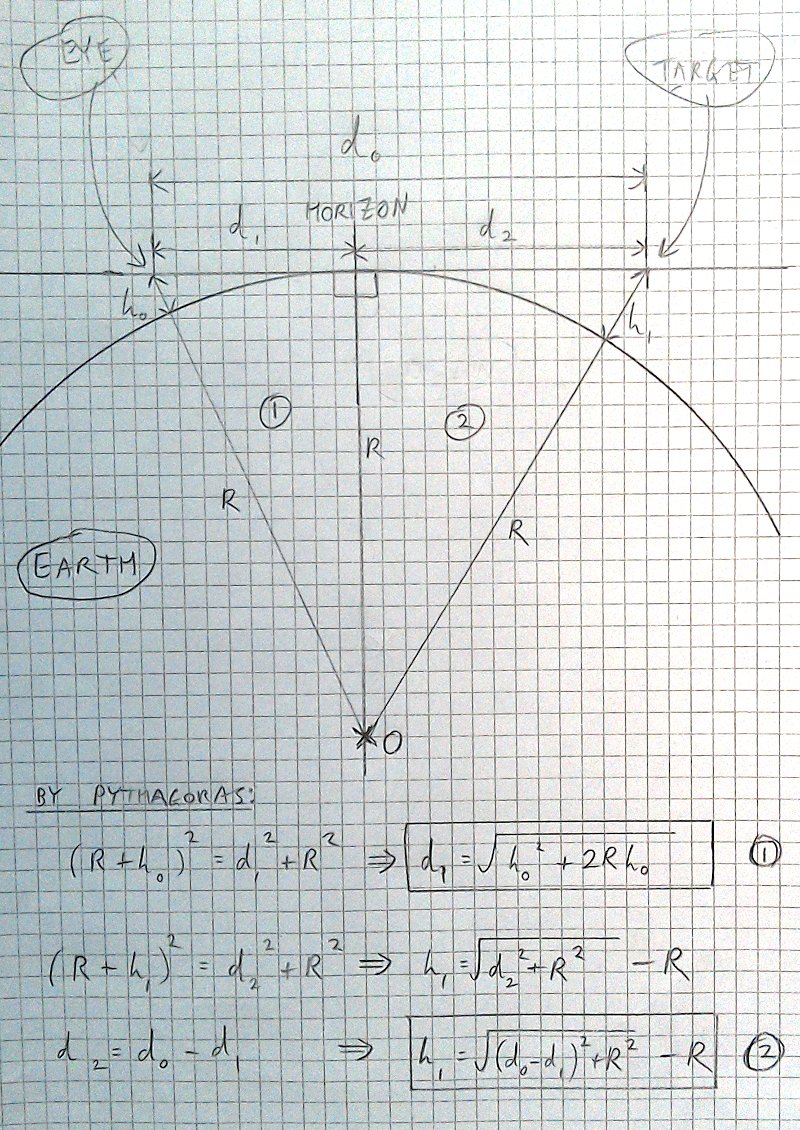 EYE
TARGET
d₀
HORIZON
d₁
d₂
h₀
h₁
①
②
R
R
R
EARTH
O
BY PYTHAGORAS:
(R+h₀)² = d₁² + R² ⇒ d₁ = √(h₀² + 2Rh₀) ①
(R+h₁)² = d₂² + R² ⇒ h₁ = √(d₂² + R²) - R
d₂ = d₀ - d₁ ⇒ h₁ = √((d₀-d₁)² + R²) - R ②